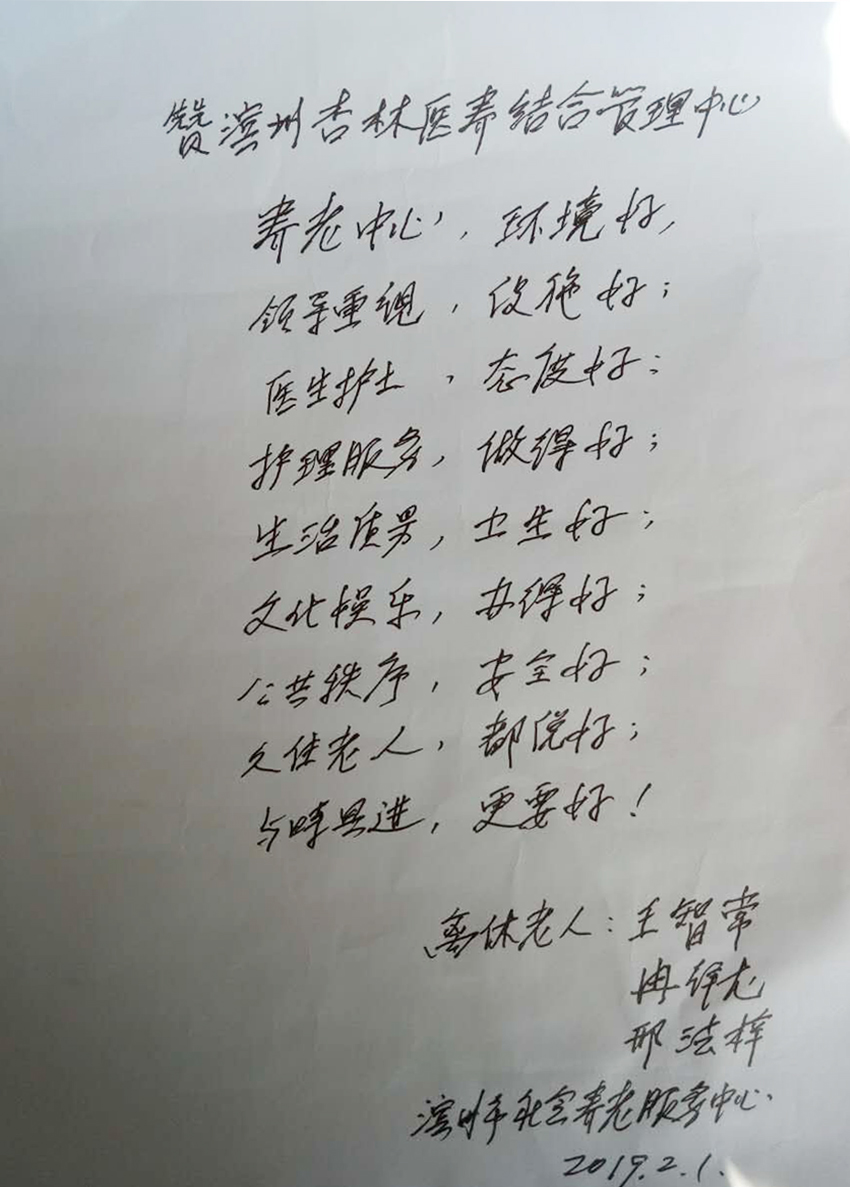 赞滨州杏林医养结合管理中心
养老中心，环境好，
领导重视，设施好；
医生护士，态度好；
护理服务，做得好；
生活质男，卫生好；
文化娱乐，办得好；
公共秩序，安全好；
久住老人，都说好；
与时具进，更要好！
离休老人：王智常
冉绎志
邢法梓
滨州市社会养老服务中心
2019.2.1.